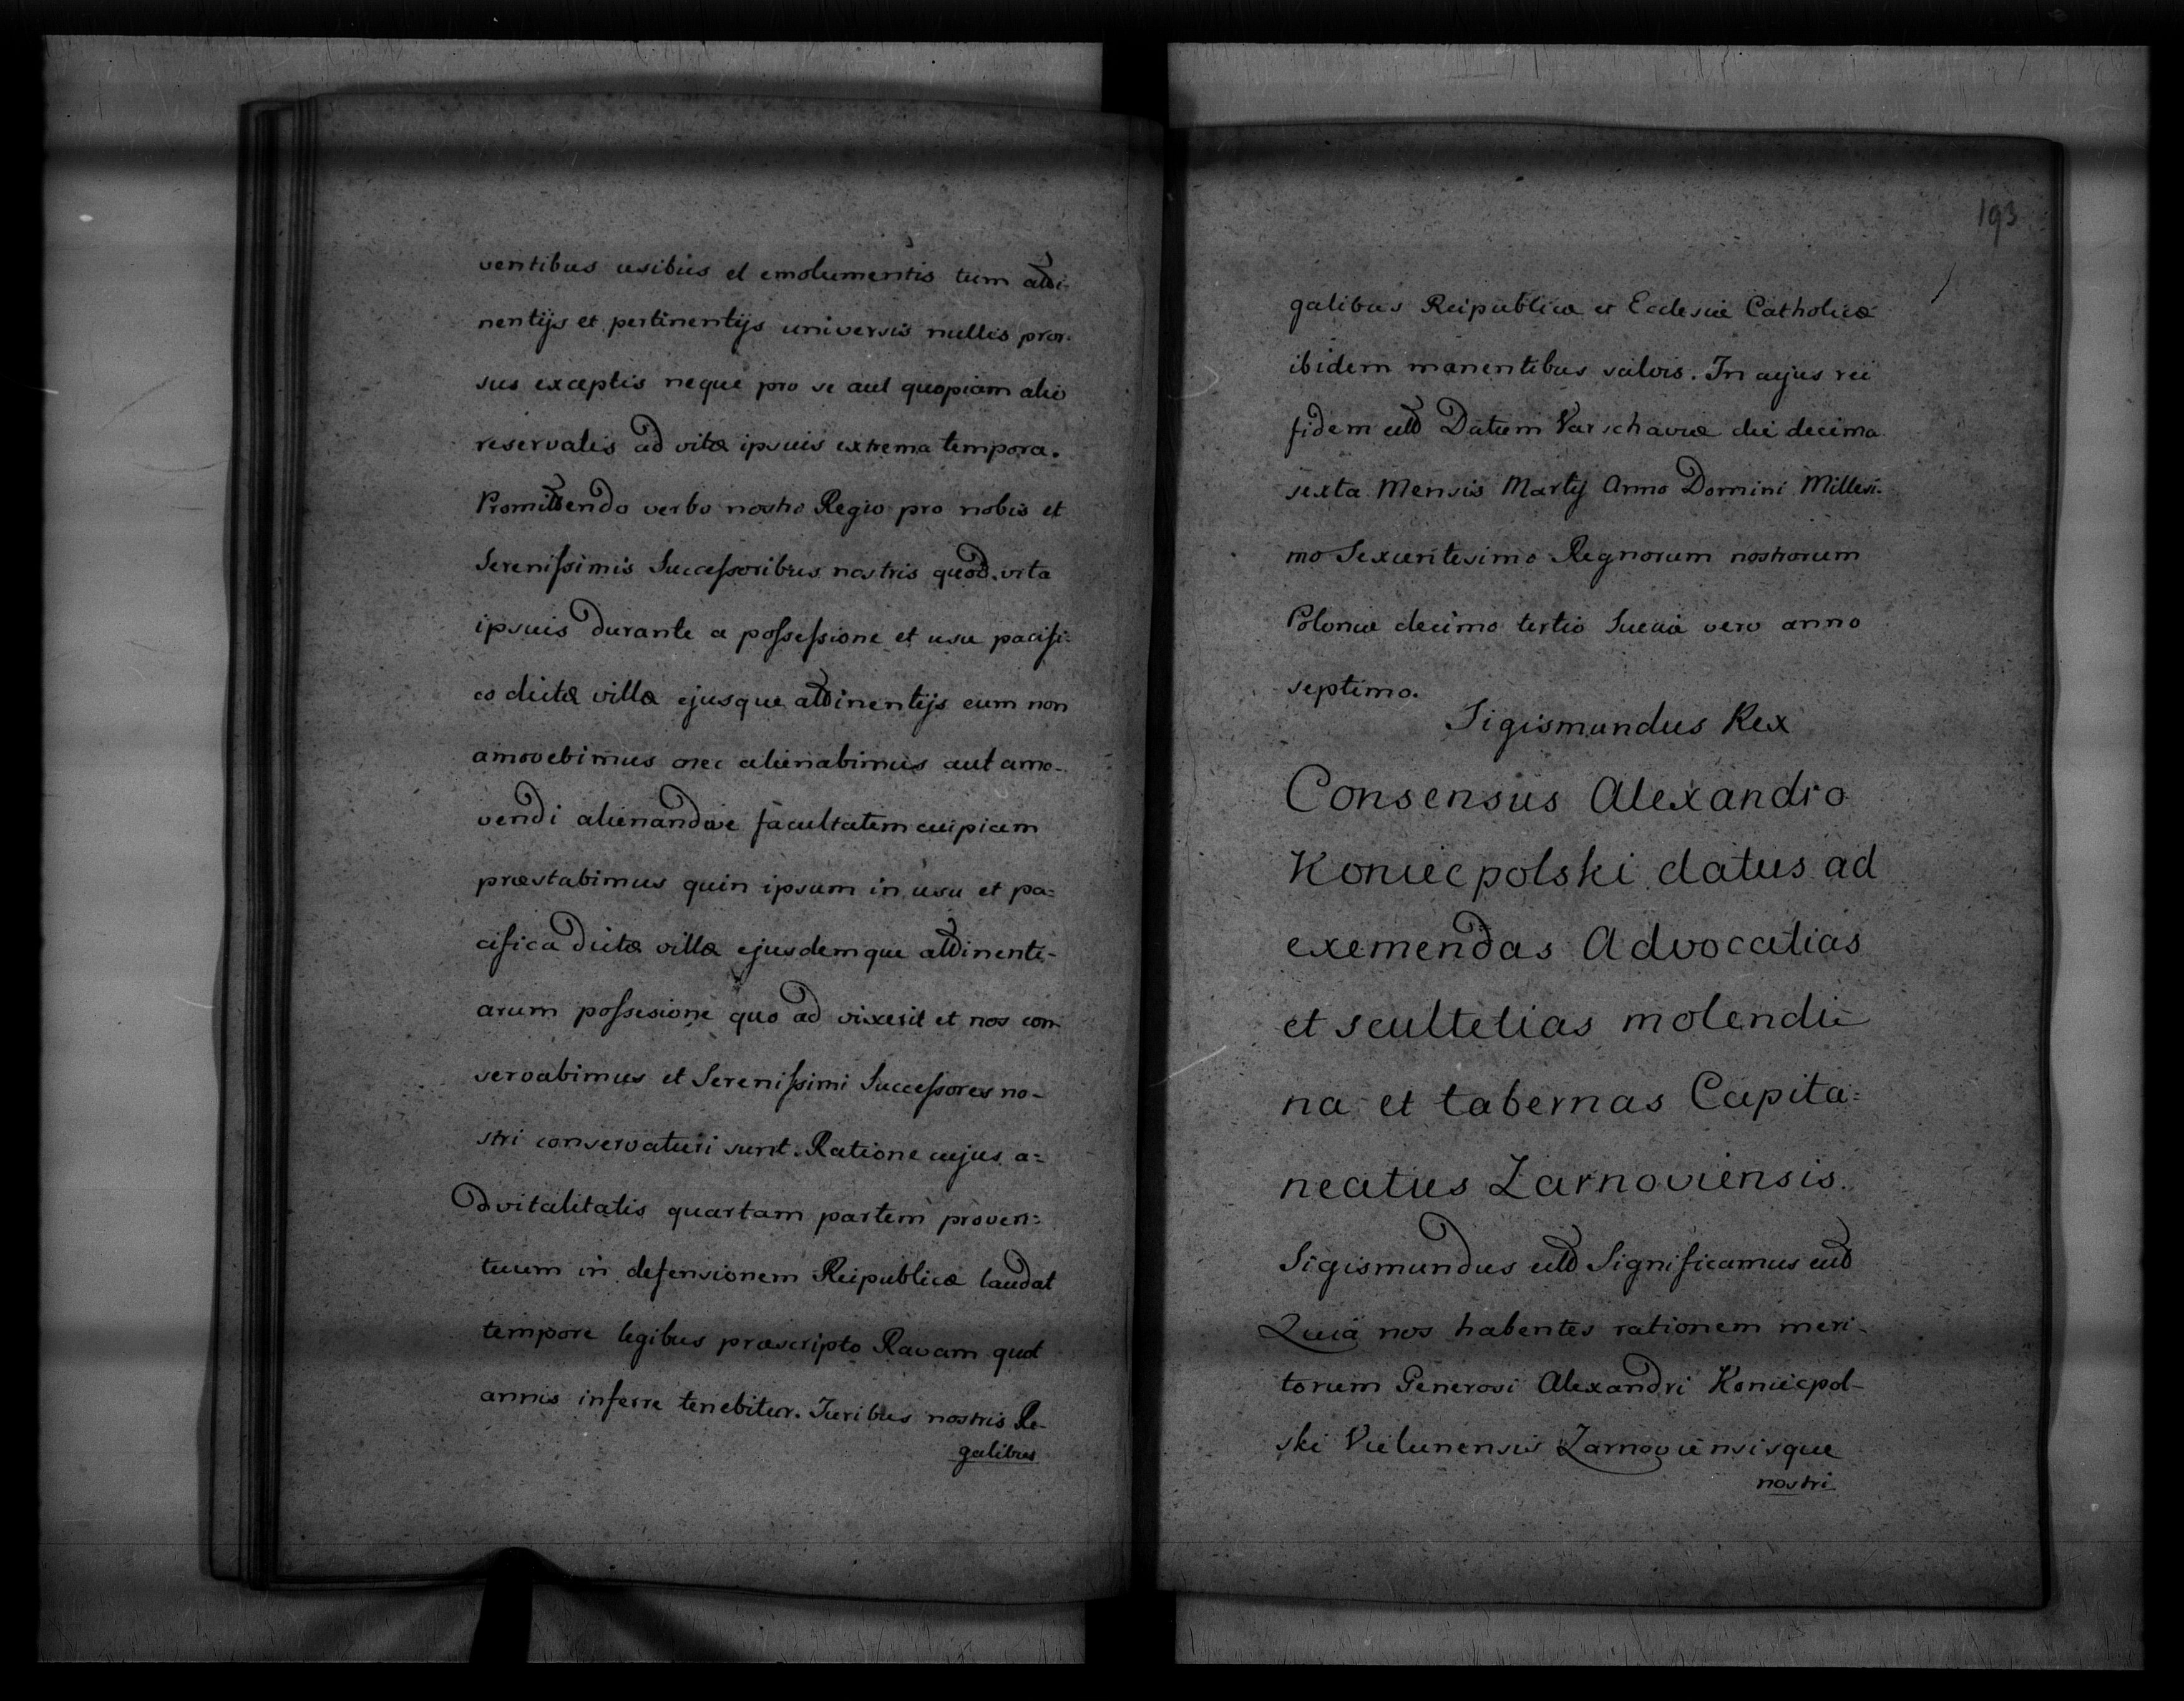 ventibus usibus et emolumentis tum atti-
nentijs et pertinentijs universis nullis pror-
sus exceptis neque pro se aut quopiam alio
reservatis ad vitæ ipsuis extrema tempora.
Promittendo verbo nostro Regio pro nobis et
Serenissimis Successoribus nostris quod vita
ipsuis durante a possessione et usu pacifi-
co dictæ villæ ejusque attinentijs eum non
amovebimus nec alienabimus aut amo-
vendi alienandive facultatem cuipiam
præstabimus quin ipsum in usu et pa=
cifica dictæ villæ ejusdemque attinenti-
arum possesione quo ad vixerit et nos con-
servabimus et Serenissimi Successores no-
stri conservaturi sunt. Ratione cujus a=
dvitalitatis quartam partem proven=
tuum in defensionem Reipublicæ laudat
tempore legibus præscripto Ravam quot
annis inferre tenebitur. Juribus nostris Re-
galibus
193
galibus Reipublicæ et Ecclesiæ Catholicæ
ibidem manentibus salvis. In cujus rei
fidem ett Datum Varschaviæ die decima
sexta Mensis Martij Anno Domini Millesi-
mo Sexcentesimo Regnorum nostrorum
Poloniæ decimo tertio Sueciæ vero anno
septimo.
Sigismundus Rex
Consensus Alexandro
Koniecpolski datus ad
exemendas Advocatias
et scultetias molendi-
na et tabernas Capita=
neatus Zarnoviensis.
Sigismundus ett Significamus ett
Quia nos habentes rationem meri-
torum Generosi Alexandri Koniecpol-
ski Vielunensis Zarnoviensisque
nostri